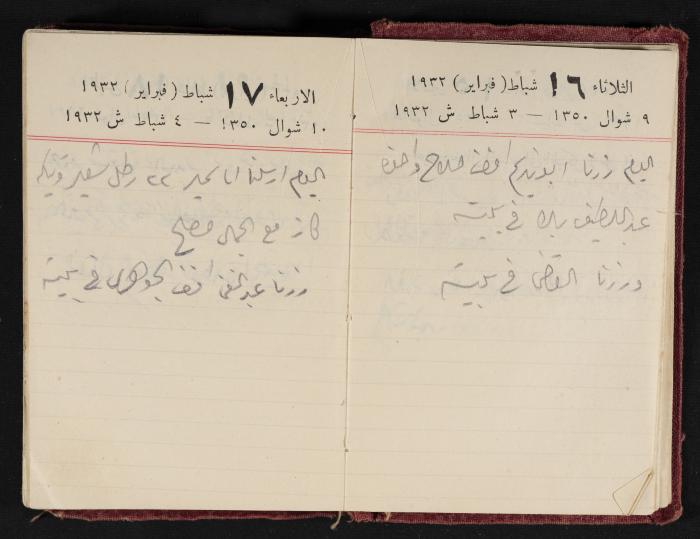 الثلاثاء ١٦ شباط (فبراير) ١٩٣٢
٩ شوال ١٣٥٠ — ٣ شباط ش ١٩٣٢
اليوم زرنا ابو نديم افندي ملاح واخوه
عبد اللطيف في بيته
وزرنا القاضي في بيته
الاربعاء ١٧ شباط (فبراير) ١٩٣٢
١٠ شوال ١٣٥٠ — ٤ شباط ش ١٩٣٢
اليوم ارسلنا ٢٢ رطل شعير وتنكة
كاز مع الجمال
وزرنا عبد الغني افندي الجوهري في بيته